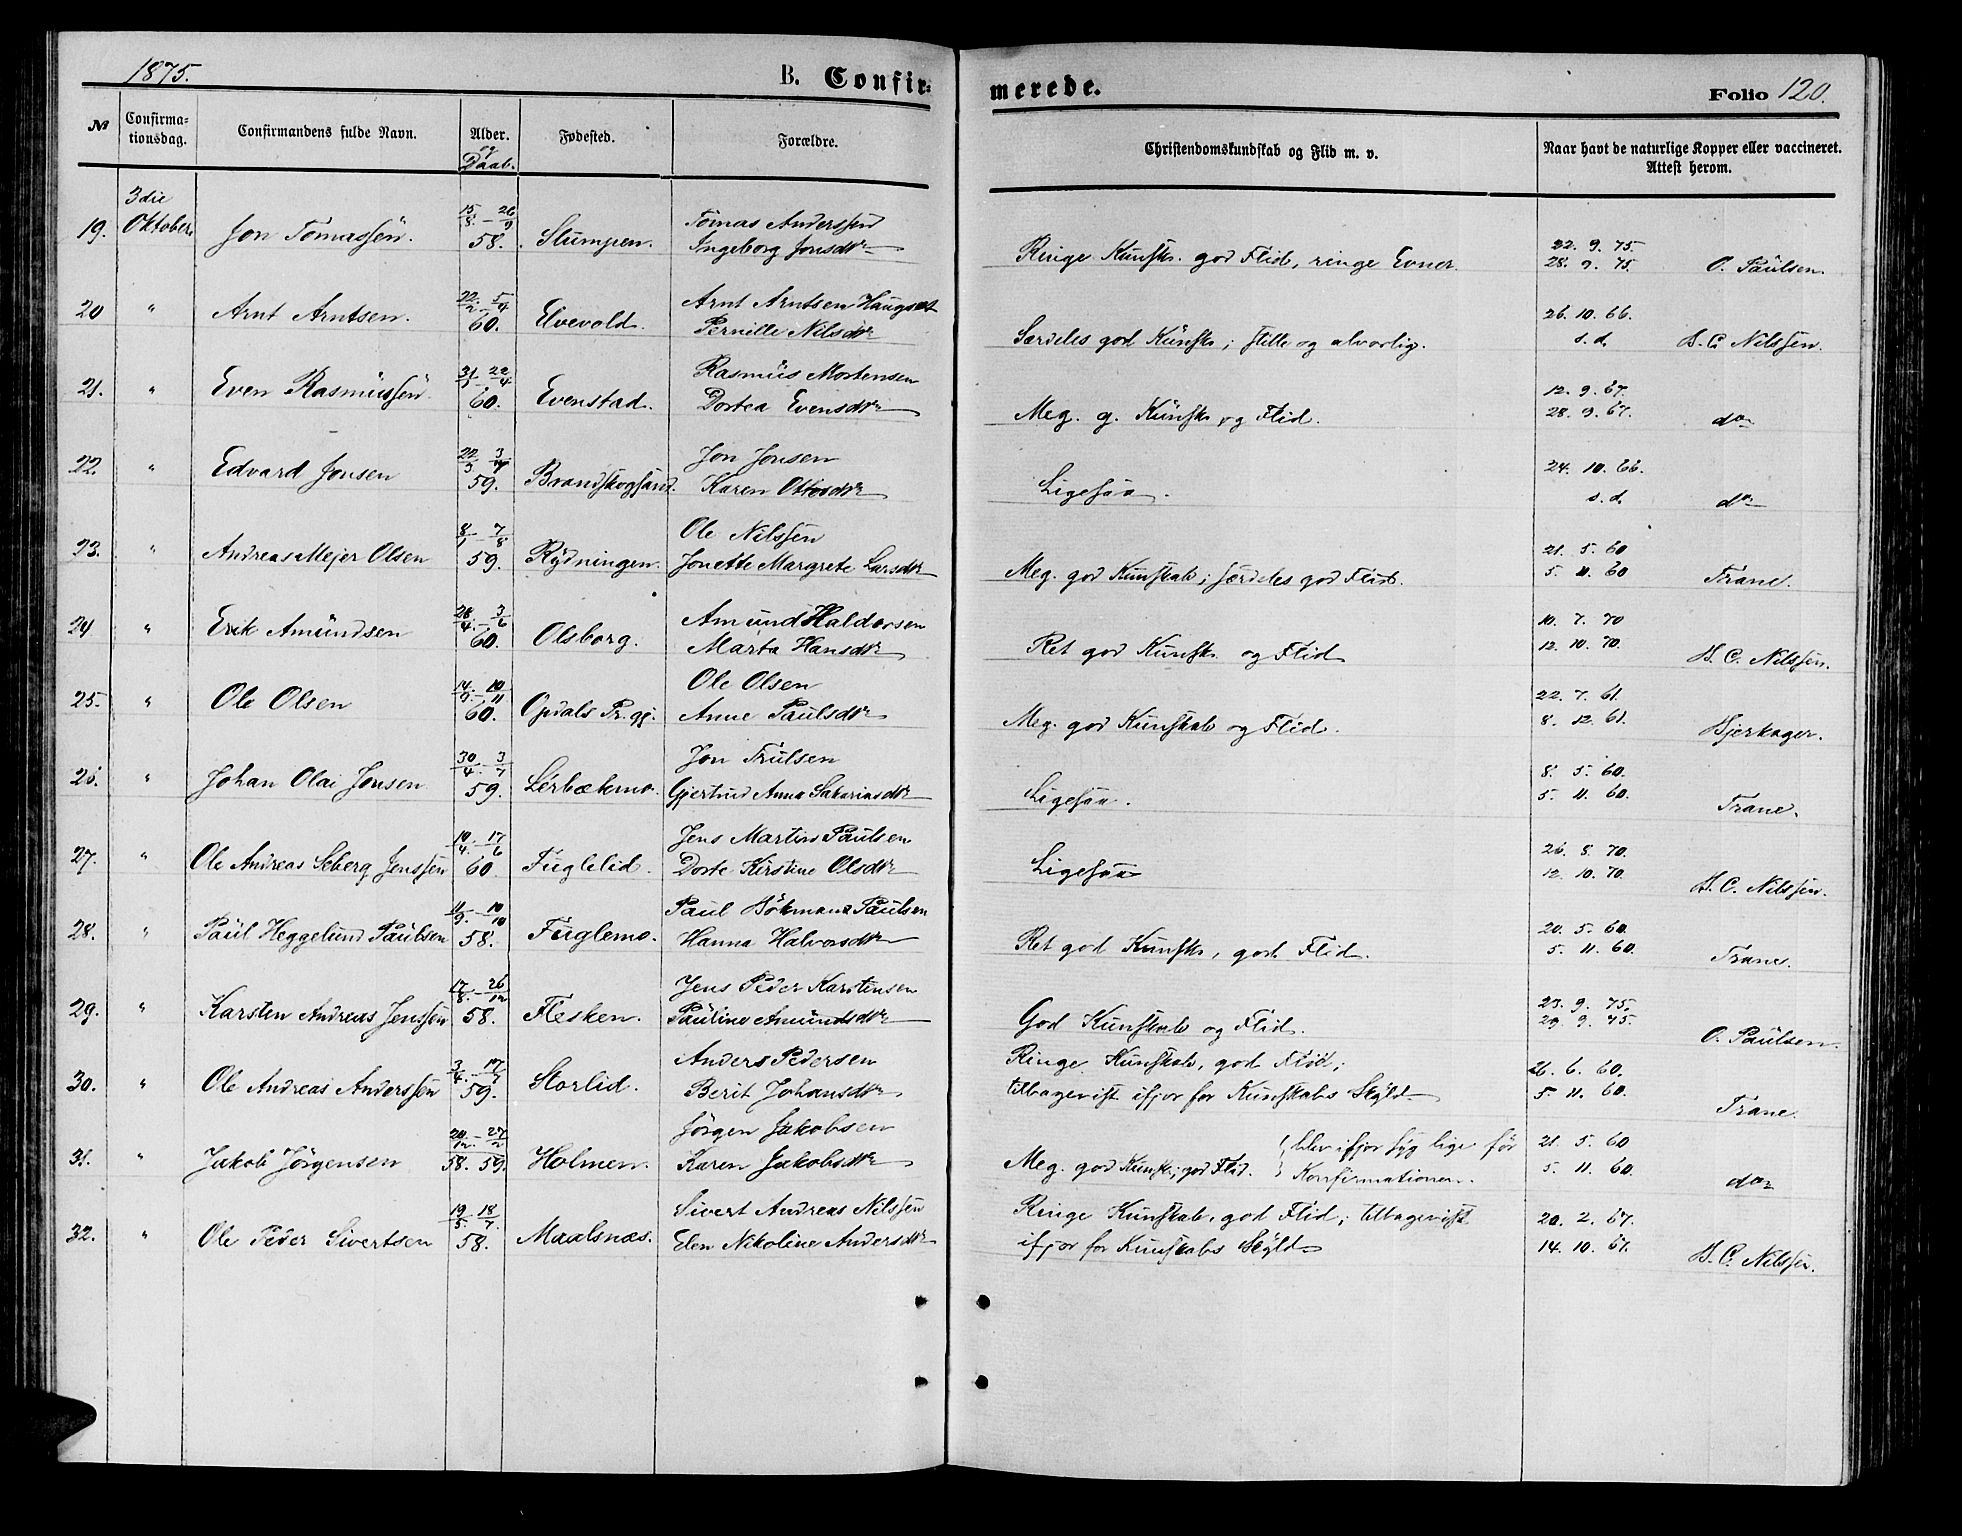 1875. B. Confir= merede. Folio 120.
№ Confirma-tionsdag. Confirmandens fulde Navn. Alder. og Daab. Fødested. Forældre. Christendomskundskab og Flid m. v. Naar havt de naturlige Kopper eller vaccineret. Attest herom.
3die 15/8 - 26/9 Tomas Anderssen 22. 9. 75.
19. Oktober. Jon Tomassen. 58. Slumpen. Ingeborg Jonsdtr Ringe Kunsk. god Flid, ringe Evner. 28. 9. 75. O. Paulsen.
22/2 - 5/4 Arnt Arntsen Haugset 26. 10. 66.
20 " Arnt Arntsen. 60. Elvevold. Pernille Nilsdtr Særdeles god Kunsk; stille og alvorlig. s. d. B. C. Nilssen.
31/1 - 22/4 Rasmus Mortensen 12. 9. 67.
21. " Even Rasmussen 60. Evenstad. Dortea Evensdtr Meg. g. Kunsk og Flid. 28. 9. 67. do
22/3 - 3/7 Jon Jonsen 24. 10. 66.
22. " Edvard Jonsen 59. Brandskogsand. Karen Ottosdtr Ligesaa. s. d. do
8/1 - 7/8 Ole Nilssen 21. 5. 60
23. " Andreas Mejer Olsen 59. Rydningen. Jonette Margrete Larsdtr Meg. god Kunskab; særdeles god Flid. 5. 11. 60 Trane.
28/4 - 3/6 Amund Haldorsen 10. 7. 70
24 " Erik Amundsen 60. Olsborg. Marta Hansdtr Ret god Kunsk. og Flid 12. 10. 70. B. C. Nilssen.
14/9 - 10/11 Ole Olsen 22. 7. 61.
25. " Ole Olsen 60. Opdals Pr.gj. Anne Paulsdtr Meg. god Kunskab og Flid. 8. 12. 61. Bjerkager.
30/4 - 3/7 Jon Trulsen 8. 5. 60.
26. " Johan Olai Jonsen 59. Lerbækmo. Gjertrud Anna Sakariasdtr Ligesaa. 5. 11. 60. Trane.
10/4 - 17/6 Jens Martin Paulsen 26. 8. 70.
27. " Ole Andreas Seberg Jenssen 60 Fuglelid. Dorte Kirstine Olsdtr Ligesaa 12. 10. 70. B. C. Nilssen.
11/9 - 10/10 Paul Bökman Paulsen 20. 5. 60.
28. " Paul Heggelund Paulsen 58. Fuglemo. Hanna Halvorsdtr Ret god Kunsk, god Flid. 5. 11. 60. Trane.
17/8 - 26/12 Jens Peder Karstensen 23. 9. 75.
29. " Karsten Andreas Jenssen 58. Flesken. Pauline Amundsdtr God Kunskab og Flid. 29. 9. 75. O. Paulsen.
3/4 - 17/7 Anders Pedersen Ringe Kunskab, god Flid; 26. 6. 60.
30. " Ole Andreas Anderssen 59. Storlid. Berit Johansdtr tilbagevist ifjor for Kunskabs Skyld 5. 11. 60. Trane.
20/12 - 27/2 Jörgen Jakobsen blev ifjor syg lige før 21. 5. 60
31. " Jakob Jörgensen 58. 59. Holmen. Karen Jakobsdtr Meg. god Kunsk; god Flid. Konfirmationen. 5. 11. 60. do
19/5 - 18/7. Sivert Andreas Nilssen Ringe Kunskab, god Flid; tilbagevist 20. 2. 67.
32. " Ole Peder Sivertsen 58. Maalsnæs. Elen Nikoline Andersdtr ifjor for Kunskabs Skyld 14. 10. 67. B. C. Nilssen.